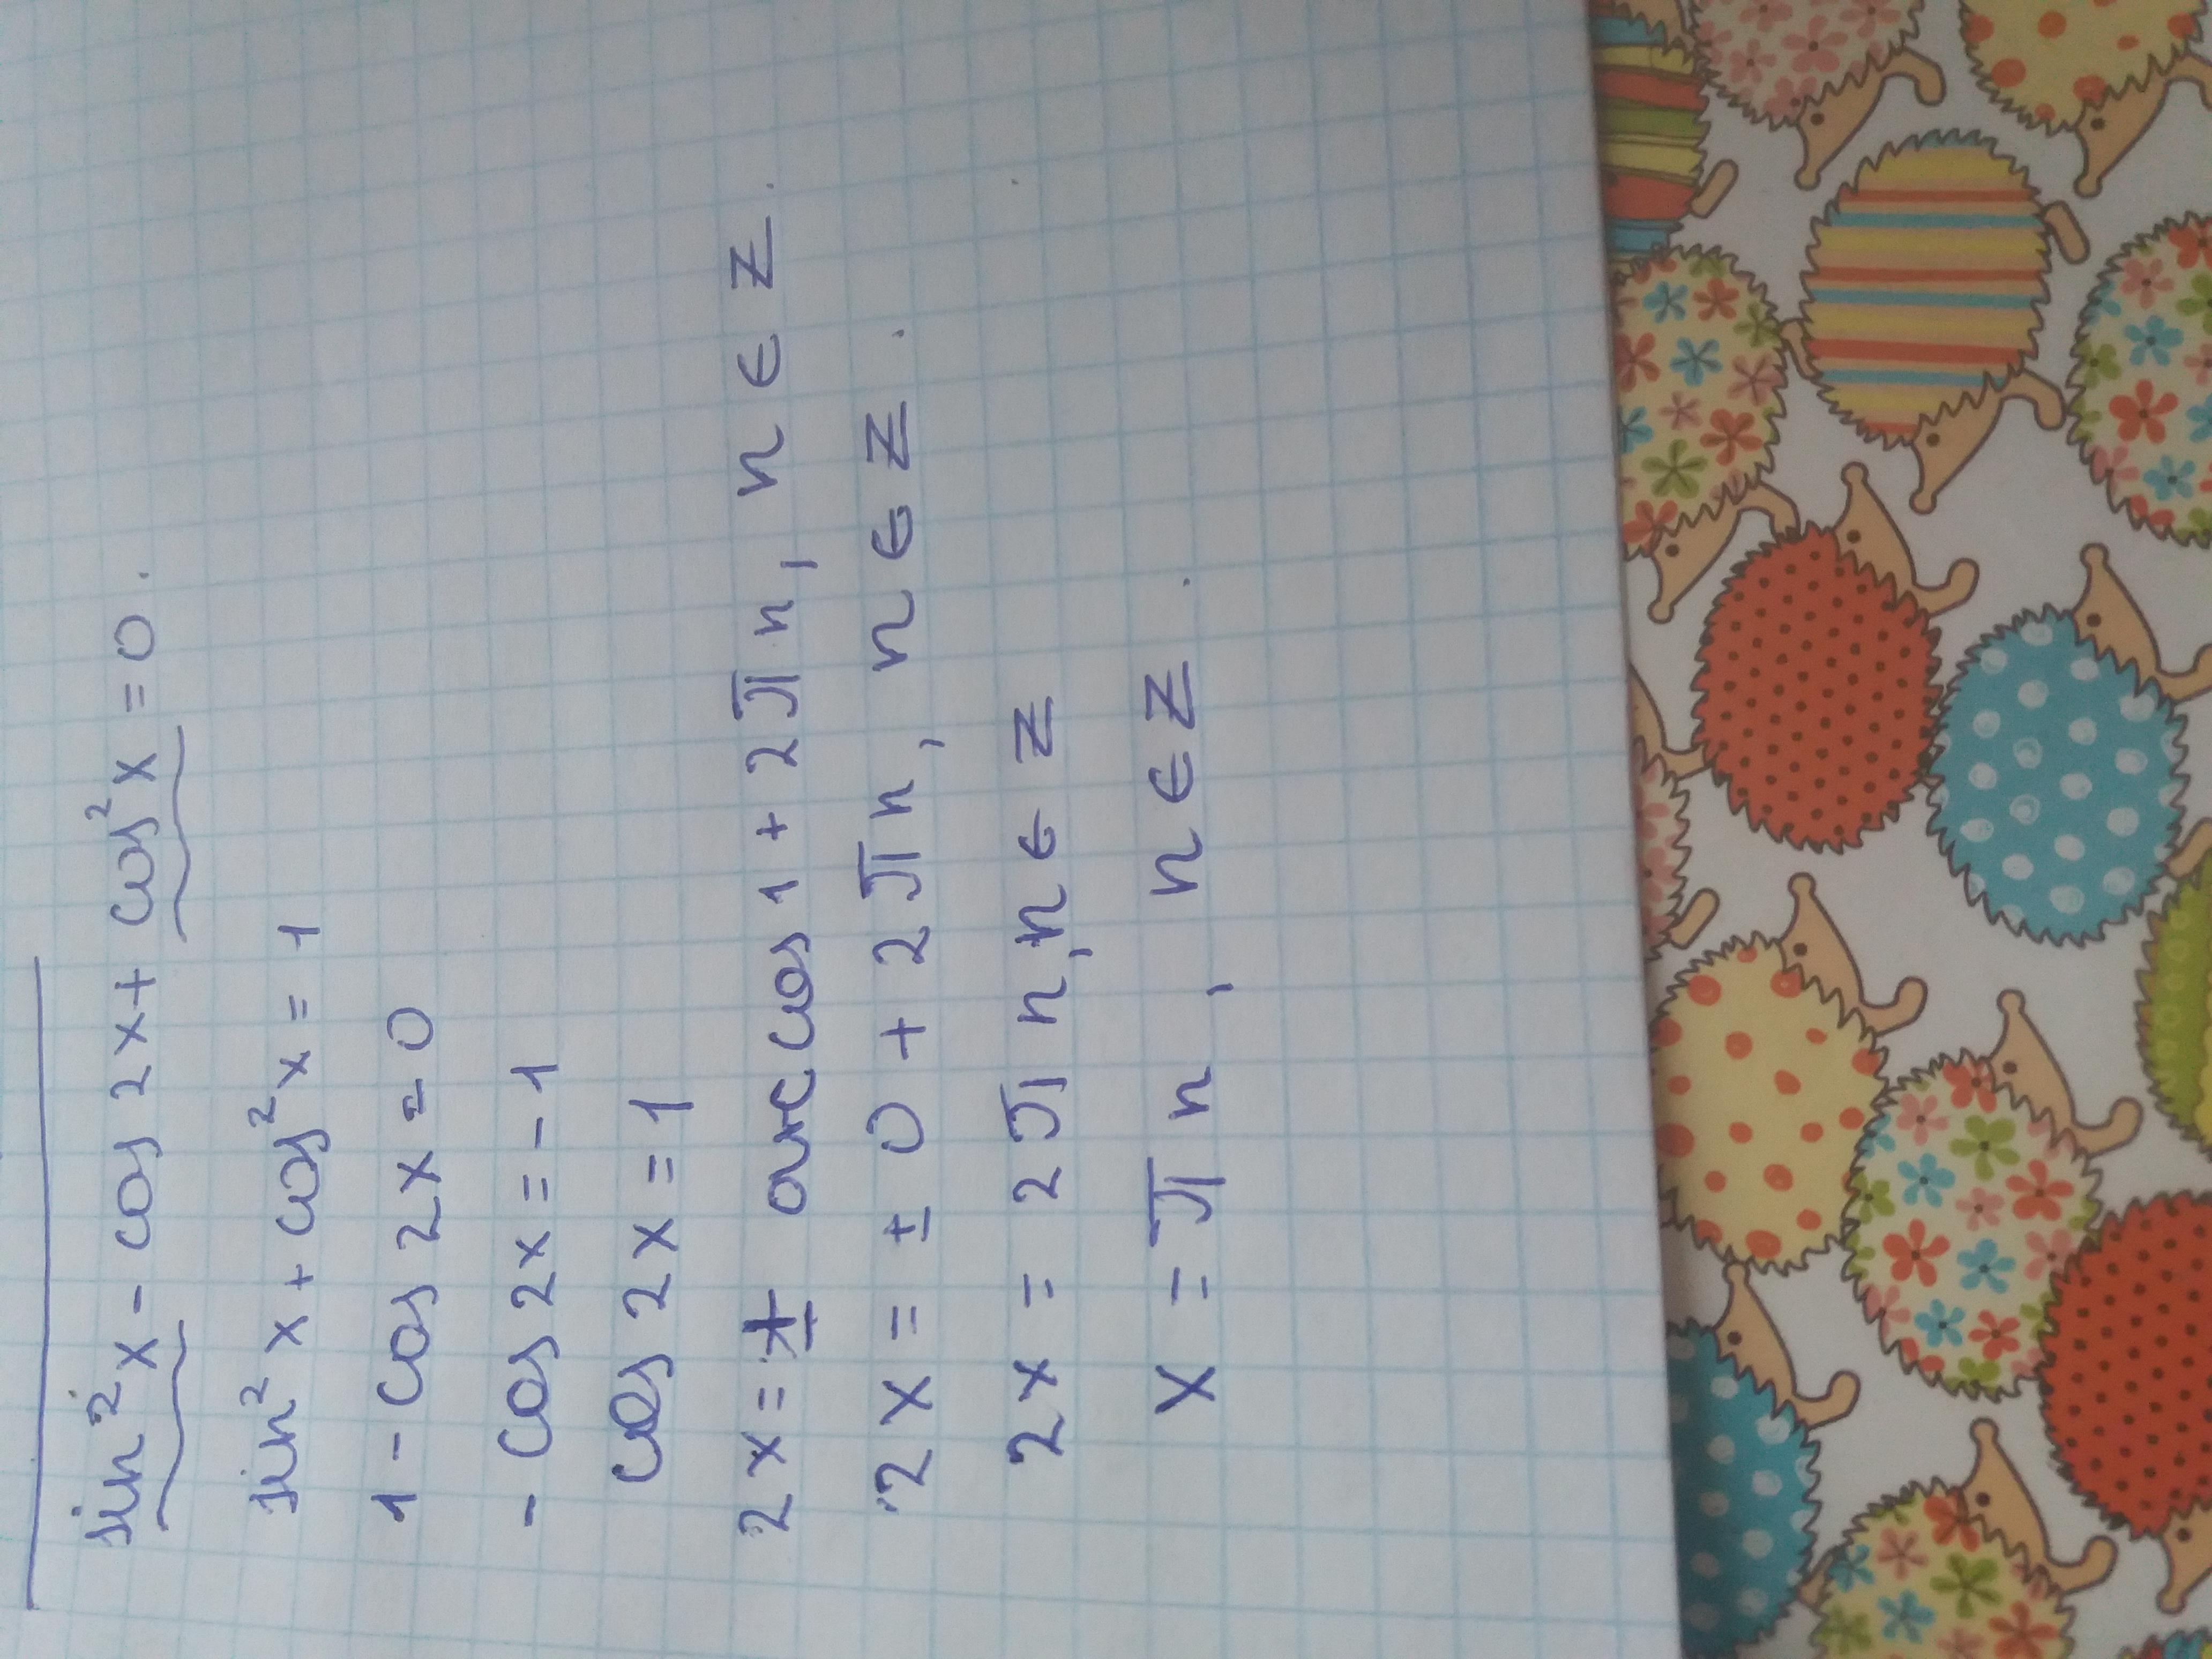 sin²x - cos 2x + cos²x = 0.
sin²x + cos²x = 1
1 - cos 2x = 0
- cos 2x = -1
cos 2x = 1
2x = ± arccos 1 + 2πn, n ∈ Z.
2x = ± 0 + 2πn, n ∈ Z.
2x = 2πn, n ∈ Z
x = πn, n ∈ Z.